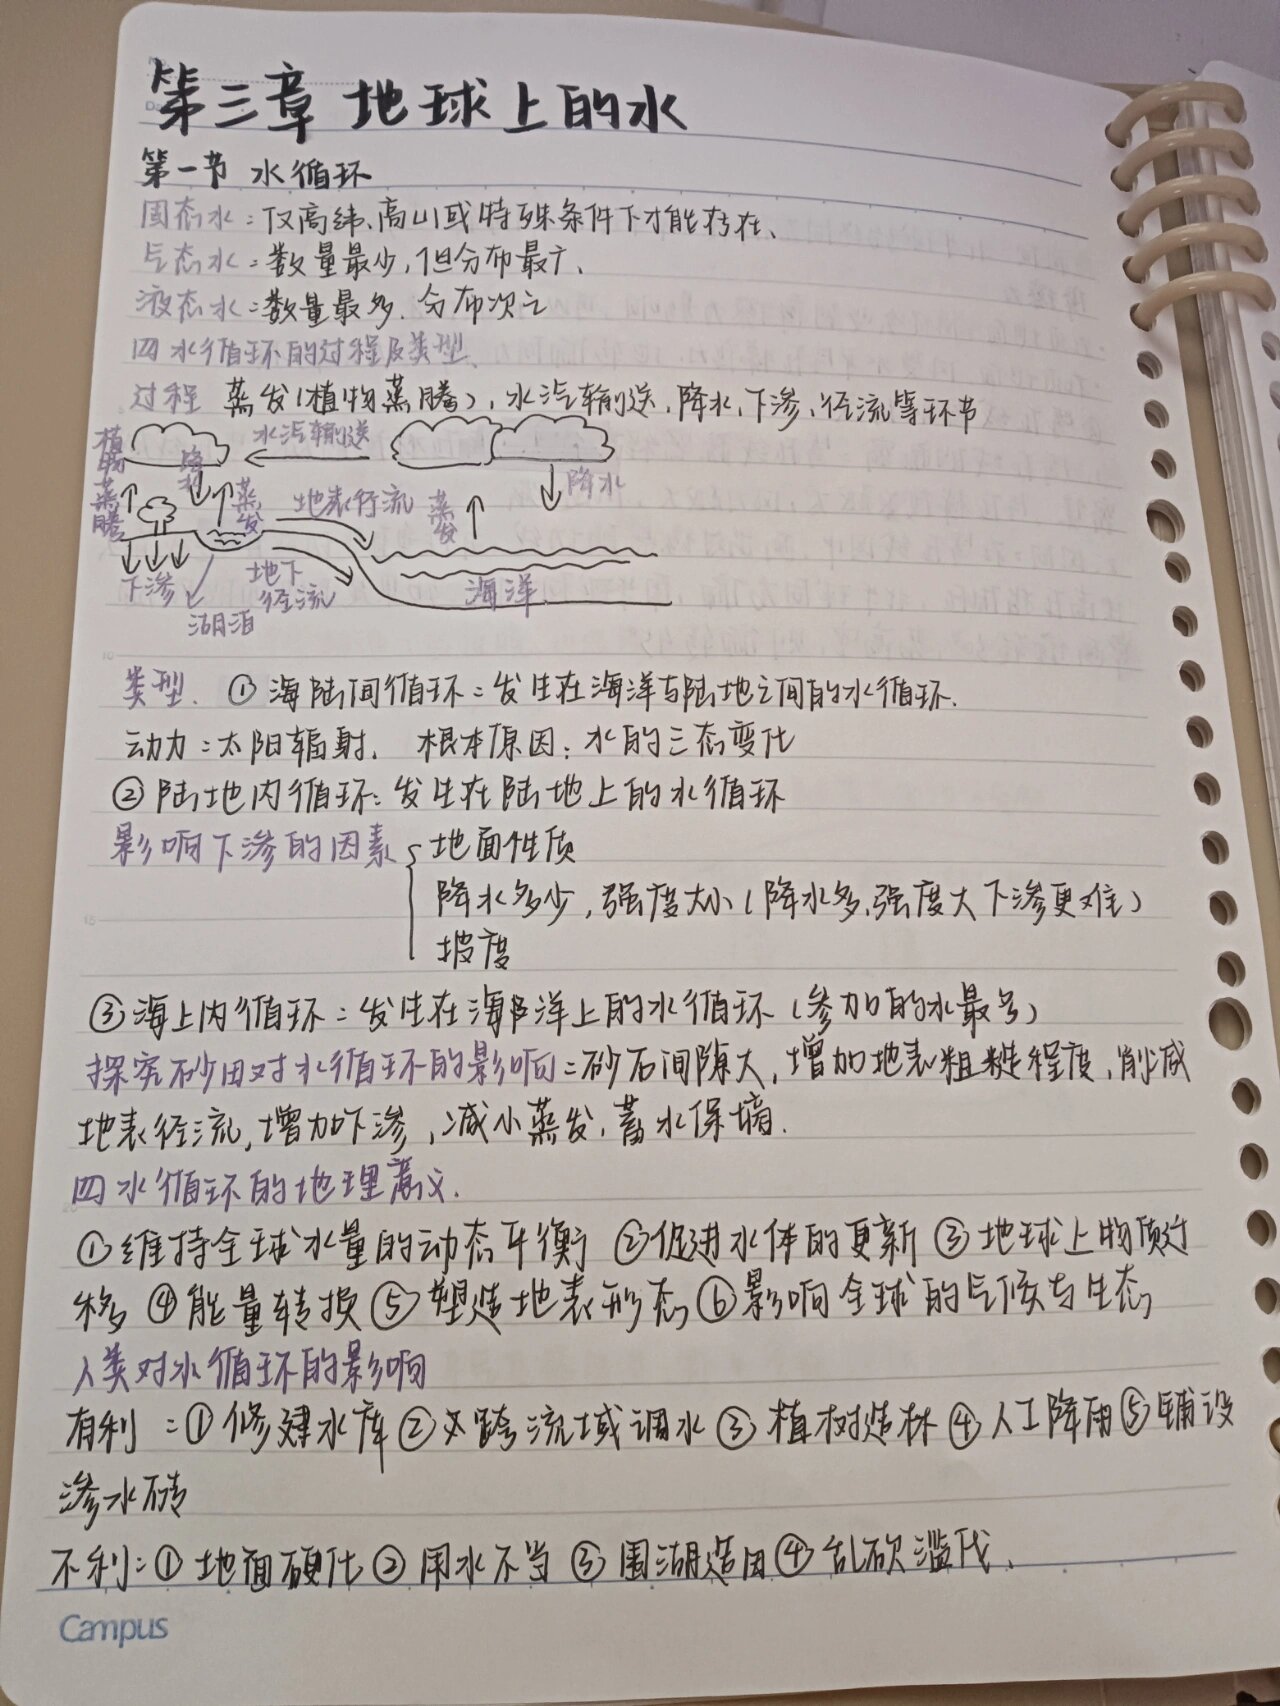 第三章 地球上的水
第一节 水循环
固态水：仅高纬、高山或特殊条件下才能存在、
气态水：数量最少，但分布最广、
液态水：数量最多、分布次之
四 水循环的过程及类型、
过程 蒸发（植物蒸腾），水汽输送，降水，下渗，径流等环节
植物蒸腾
降水
水汽输送
蒸发
地表径流
蒸发
降水
下渗
湖泊
地下径流
海洋
类型、①海陆间循环：发生在海洋与陆地之间的水循环．
动力：太阳辐射． 根本原因：水的三态变化
②陆地内循环：发生在陆地上的水循环
影响下渗的因素
地面性质
降水多少，强度大小（降水多，强度大下渗更难）
坡度
③海上内循环：发生在海洋上的水循环（参加的水最多）
探究砂田对水循环的影响：砂石间隙大，增加地表粗糙程度，削减
地表径流，增加下渗，减小蒸发，蓄水保墒．
四 水循环的地理意义．
①维持全球水量的动态平衡 ②促进水体的更新 ③地球上物质迁
移 ④能量转换 ⑤塑造地表形态 ⑥影响全球的气候与生态
人类对水循环的影响
有利：①修建水库 ②跨流域调水 ③植树造林 ④人工降雨 ⑤铺设
渗水砖
不利：①地面硬化 ②用水不当 ③围湖造田 ④乱砍滥伐．
Campus